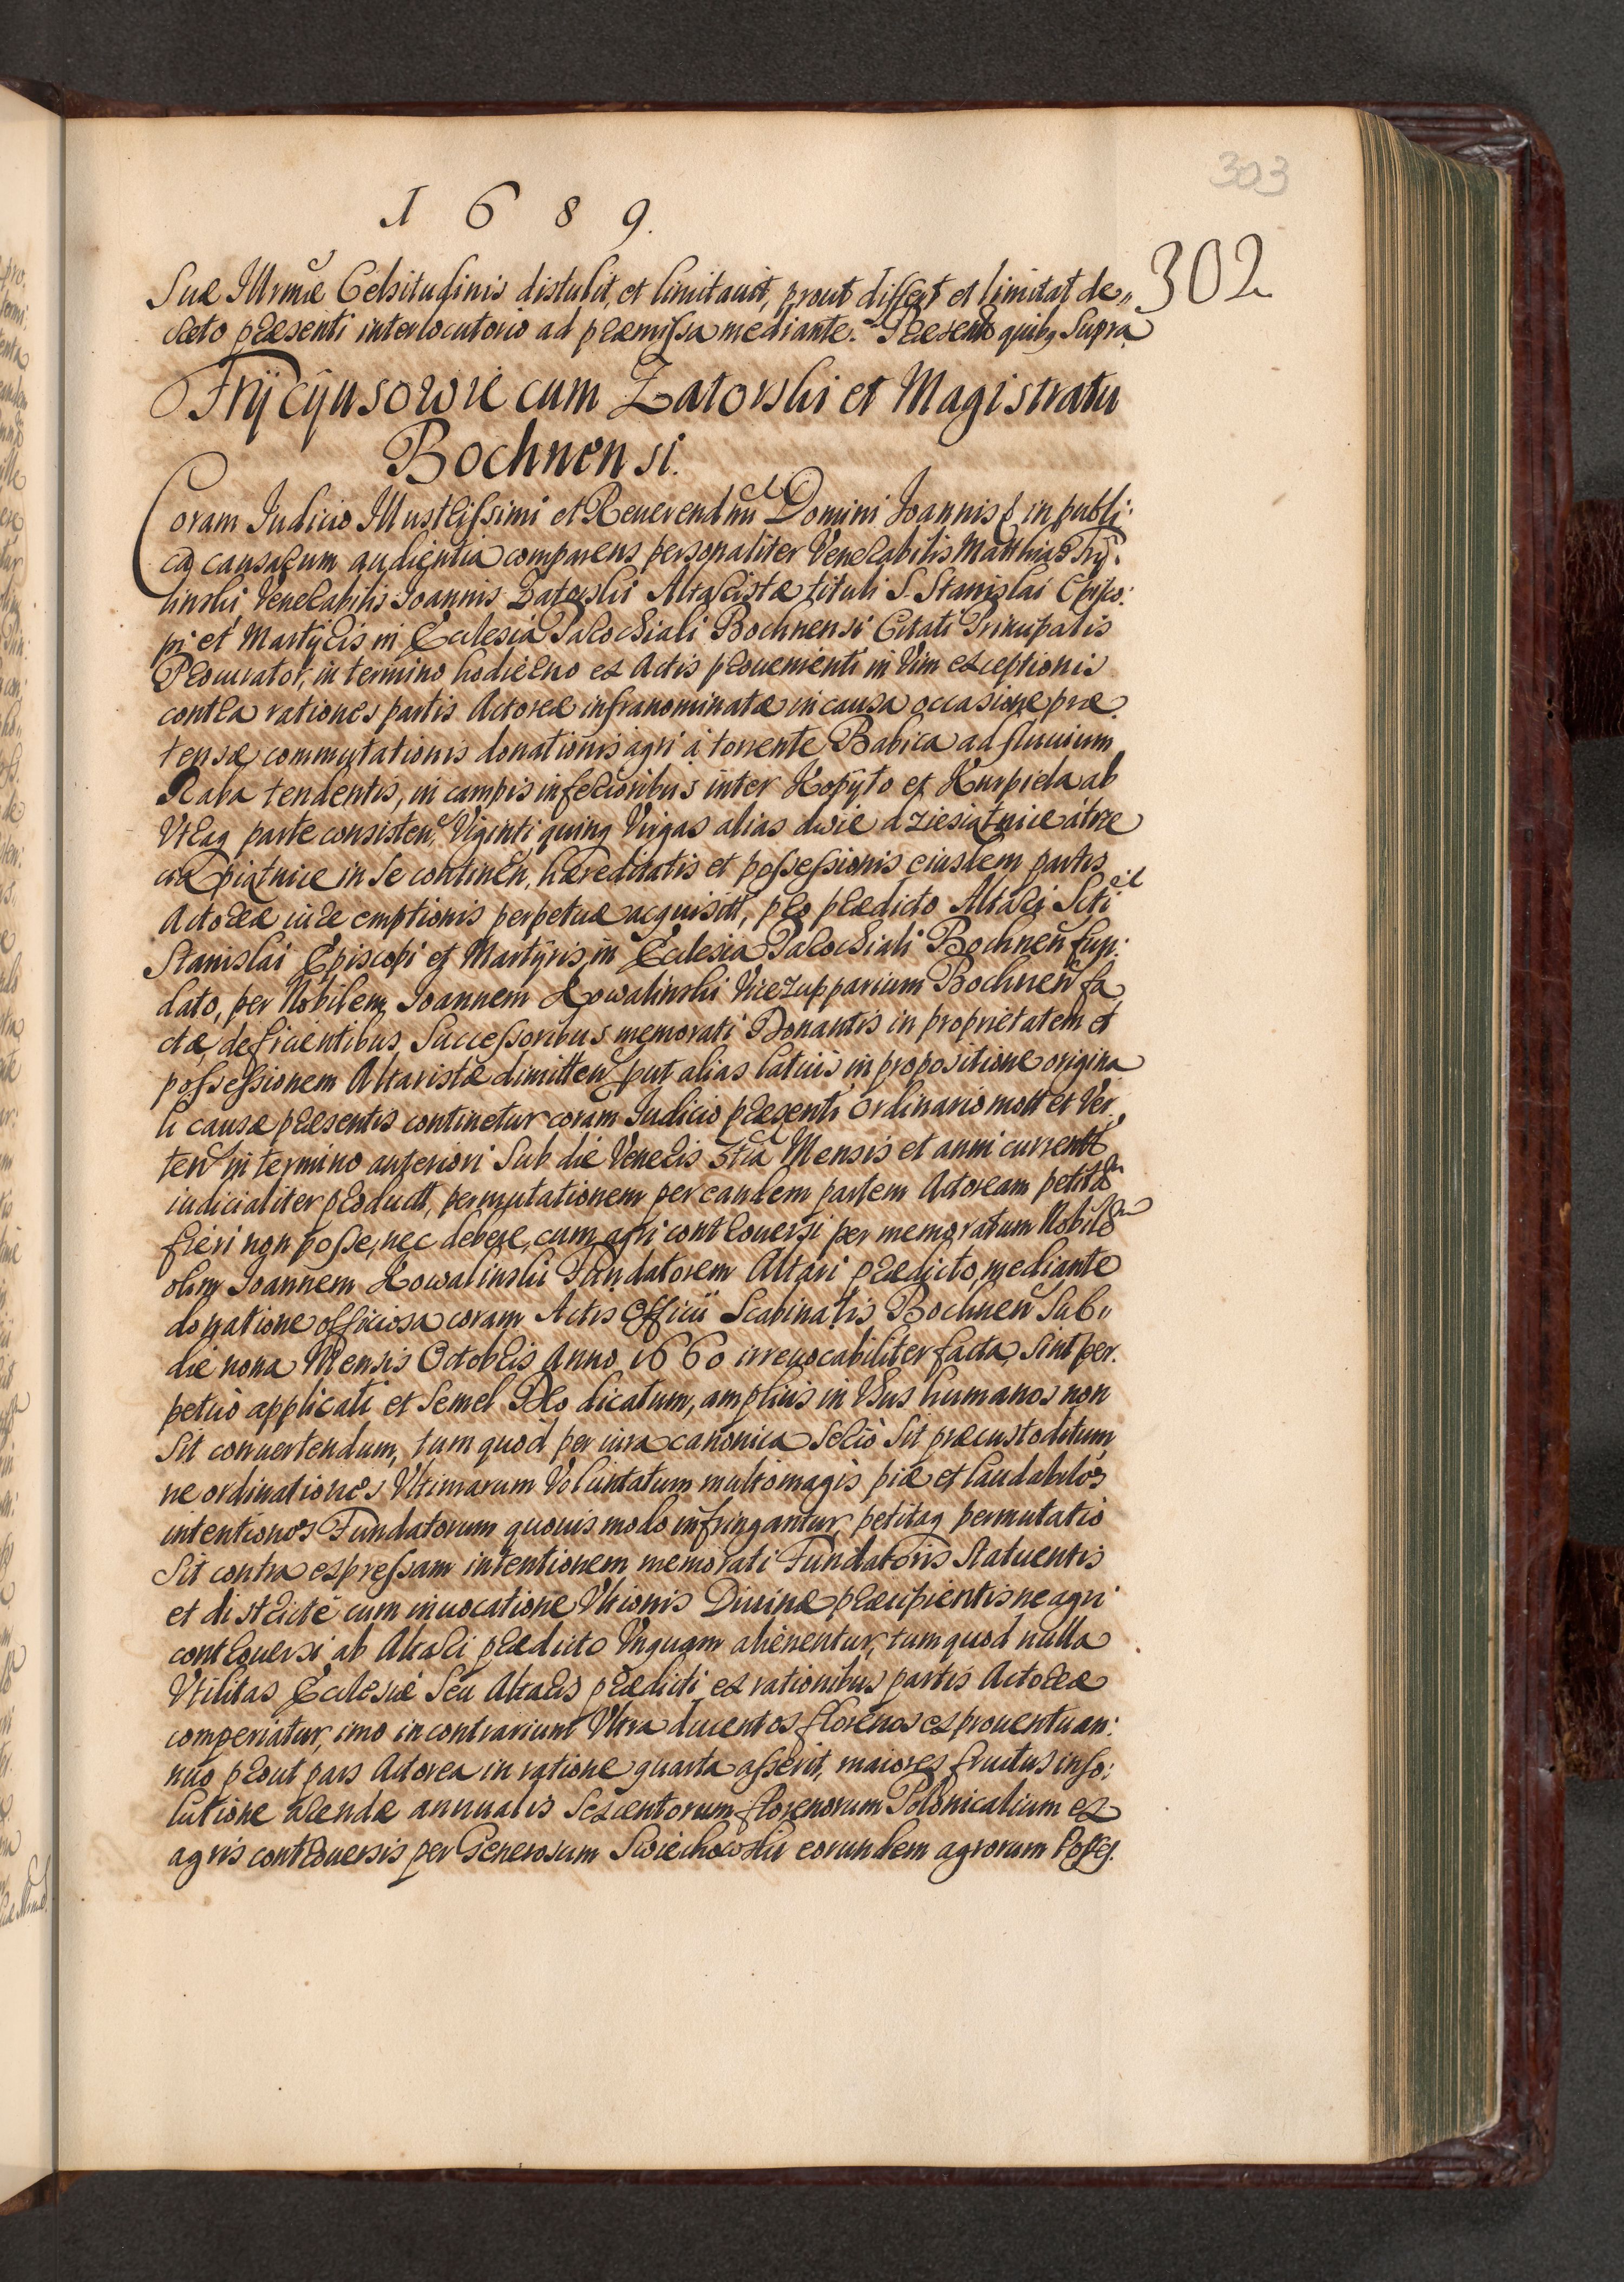 303
1689.
302
Suæ Illrmæ Celsitudinis distulit, et limitauit, prout differt et limitat de„
creto præsenti interlocutorio ad præmissa mediante. Præsentib quibq Supra
Frycyusowie cum Zatorski et Magistratu
Bochnensi.
Coram Iudicio Illustrissimi et Reuerendmi Domini Joannis & in publi:
ca causarum audientia comparens personaliter Venerabilis Matthias Try:
linski Venerabilis Joannis Zatorski Altaristæ tituli S. Stanislai Episco:
pi et Martyris in Ecclesia Parochiali Bochnensi Citati Principalis
Procurator, in termino hodierno ex Actis prouenienti in Vim exceptionis
contra rationes partis Actoreæ infranominatæ in causa occasione præ
tensæ commutationis donationis agri a torrente Babica ad fluuium
Raba tendentis, in campis inferioribus inter Kopyto et Kurpiela ab
Vtraq parte consisten, Viginti quinq Virgas alias dwie dziesiątnice á trze
cia piątnice in se continen, hæreditatis et possessionis eiusdem partis
Actoreæ iure emptionis perpetuæ acquisitt, pro prædicto Altari Scti
Stanislai Episcopi et Martyris, in Ecclesia Parochiali Bochnen fun:
dato, per Nobilem Joannem Kowalinski Vicezupparium Bochnen fa
ctæ, deficientibus Successoribus memorati Donantis in proprietatem et
possessionem Altaristæ dimitten put alias latius in propositione origina
li causæ præsentis continetur coram Iudicio præsenti Ordinario mott et Ver
ten in termino anteriori Sub die Veneris 3tia Mensis et anni currentt
iudicialiter productt, permutationem per eandem partem Actoream petitam
fieri non posse, nec debere, cum agri controuersi per memoratum Nobilem
olim Joannem Kowalinski Fundatorem Altari prædicto, mediante
donatione officiosa coram Actis Officii Scabinalis Bochnen Sub„
die nona Mensis Octobris Anno 1660 irreuocabiliter facta, sint per
petuò applicati et semel Deo dicatum, amplius in Vsus humanos non
sit conuertendum, tum quod per iura canonica Seriò sit præcustoditum
ne ordinationes Vltimarum Voluntatum multomagis piæ et laudabiles
intentiones Fundatorum quouis modo infringantur, petitaq permutatio
Sit contra expressam intentionem memorati Fundatoris statuentis
et districtè cum inuocatione Vltionis Diuinæ præcipientis ne agri
controuersi ab Altari prædicto Vnquam alienentur, tum quod nulla
Vtilitas Ecclesiæ seu Altaris prædicti ex rationibus partis Actoreæ
comperiatur, imo in contrarium Vltra ducentos florenos ex prouentu an:
nuo prout pars Actorea in ratione quarta asserit, maiores fructus in so:
lutione arendæ annualis Sexcentorum florenorum Polonicalium ex
agris controuersis per Generosum Swiechowski eorundem agrorum Posses